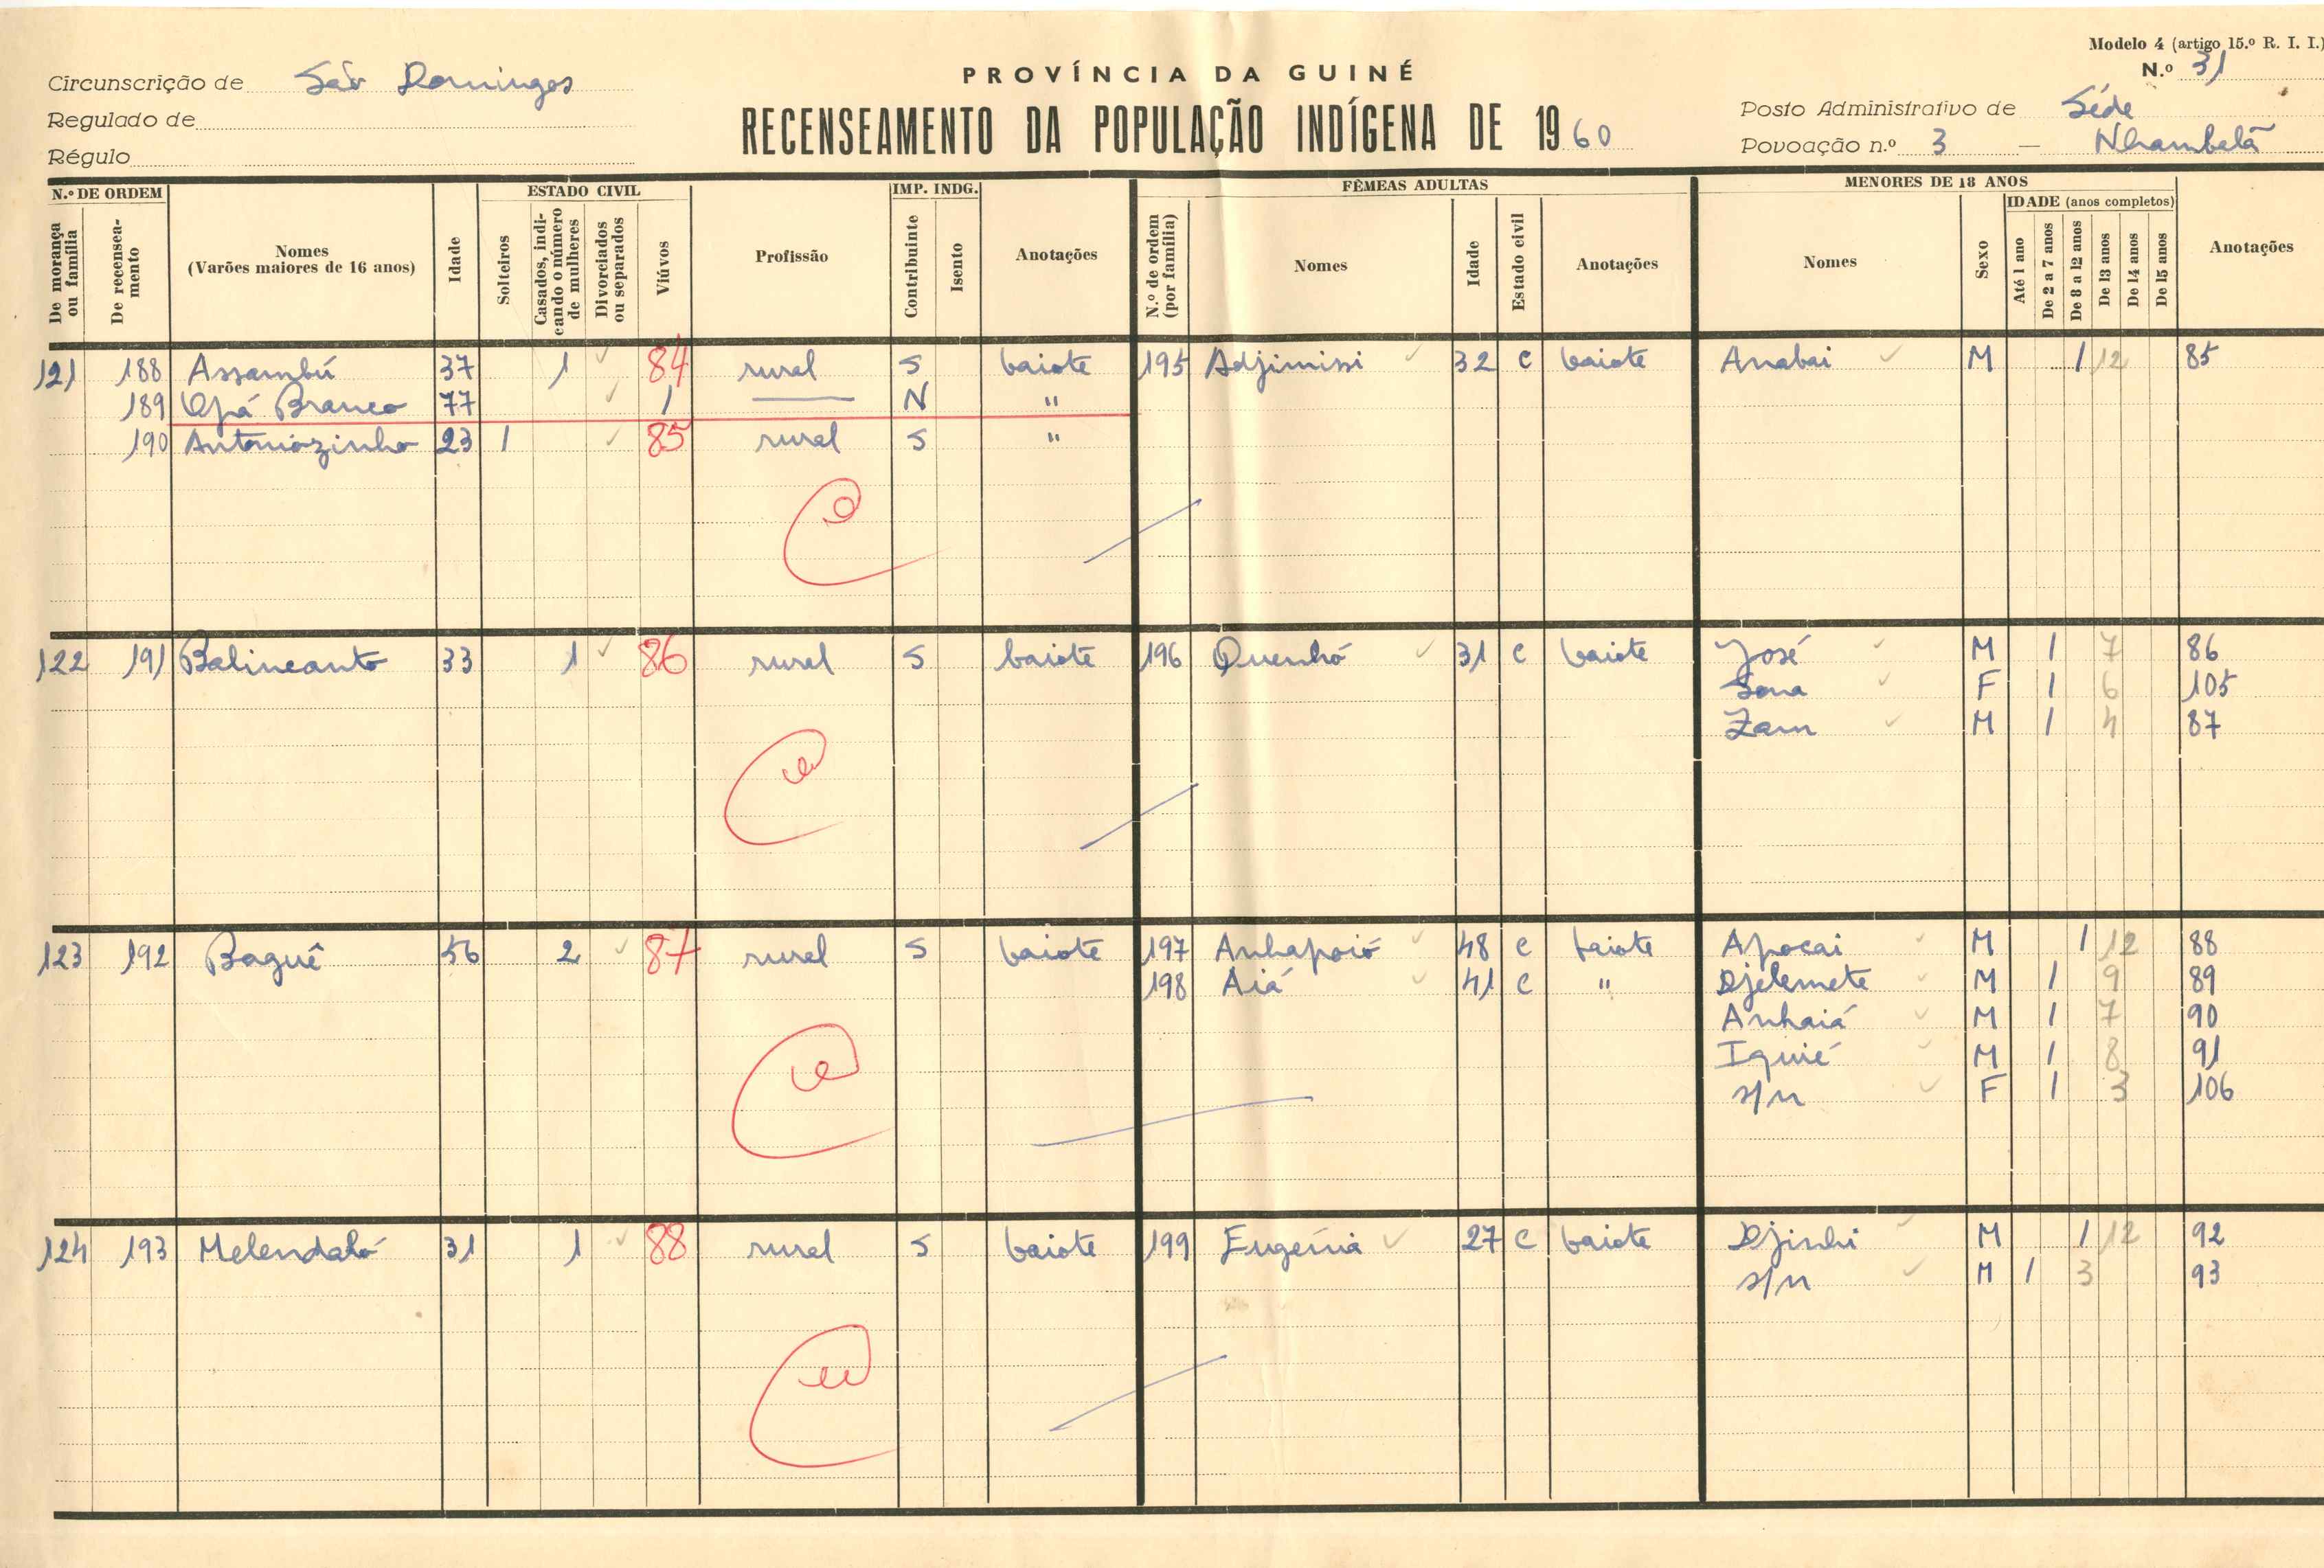 Modelo 4 (artigo 15.º R. I. I.)
N.º 31
PROVÍNCIA DA GUINÉ
RECENSEAMENTO DA POPULAÇÃO INDÍGENA DE 1960
Circunscrição de São Domingos
Regulado de
Régulo
Posto Administrativo de Séde
Povoação n.º 3 — Nhambalã
N.º DE ORDEM
De morança ou família
De recenseamento
Nomes
(Varões maiores de 16 anos)
Idade
ESTADO CIVIL
Solteiros
Casados, indicando o número de mulheres
Divorciados ou separados
Viúvos
Profissão
IMP. INDG.
Contribuinte
Isento
Anotações
FÊMEAS ADULTAS
N.º de ordem (por família)
Nomes
Idade
Estado civil
Anotações
MENORES DE 18 ANOS
Nomes
Sexo
IDADE (anos completos)
Até 1 ano
De 2 a 7 anos
De 8 a 12 anos
De 13 anos
De 14 anos
De 15 anos
Anotações
121 188 Assambú 37 1 84 rural S baiote 195 Adjimissi 32 C baiote Anabai M 1 12 85
189 Branco 77 1 N "
190 Antoniozinho 23 1 85 rural S "
122 191 Balincanto 33 1 86 rural S baiote 196 Quenhó 31 C baiote José M 1 7 86
Sona F 1 6 105
Zam M 1 4 87
123 192 Baguê 56 2 87 rural S baiote 197 Anhapoió 48 C baiote Apocai M 1 12 88
198 Aiá 41 C " Djelemete M 1 9 89
Anhaiá M 1 7 90
Iquié M 1 8 91
s/n F 1 3 106
124 193 31 1 88 rural S baiote 199 Eugénia 27 C baiote Djinhi M 1 12 92
s/n M 1 3 93